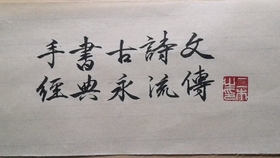 手書古詩文
經典永流傳